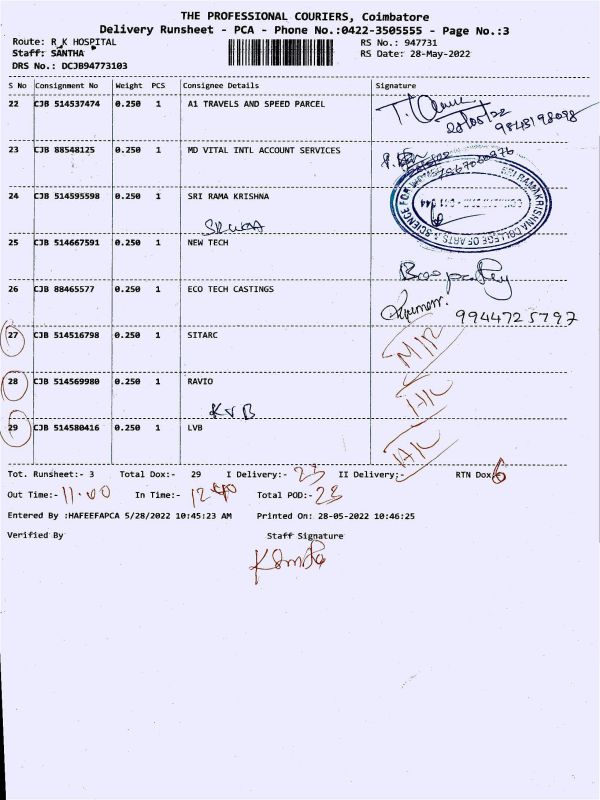 THE PROFESSIONAL COURIERS, Coimbatore
Delivery Runsheet - PCA - Phone No.:0422-3505555 - Page No.:3
Route: R K HOSPITAL RS No.: 947731
Staff: SANTHA RS Date: 28-May-2022
DRS No.: DCJB94773103
S No Consignment No Weight PCS Consignee Details Signature
22 CJB 514537474 0.250 1 A1 TRAVELS AND SPEED PARCEL
28/05/22
9843198098
23 CJB 88548125 0.250 1 MD VITAL INTL ACCOUNT SERVICES
24 CJB 514595598 0.250 1 SRI RAMA KRISHNA
SRI RAMAKRISHNA COLLEGE OF ARTS & SCIENCE FOR
25 CJB 514667591 0.250 1 NEW TECH
26 CJB 88465577 0.250 1 ECO TECH CASTINGS
9944725797
27 CJB 514516798 0.250 1 SITARC
28 CJB 514569980 0.250 1 RAVIO
KVB
29 CJB 514580416 0.250 1 LVB
Tot. Runsheet:- 3 Total Dox:- 29 I Delivery:- 23 II Delivery:- RTN Dox 6
Out Time:- 11.00 In Time:- 12 40 Total POD:- 23
Entered By :HAFEEFAPCA 5/28/2022 10:45:23 AM Printed On: 28-05-2022 10:46:25
Verified By Staff Signature